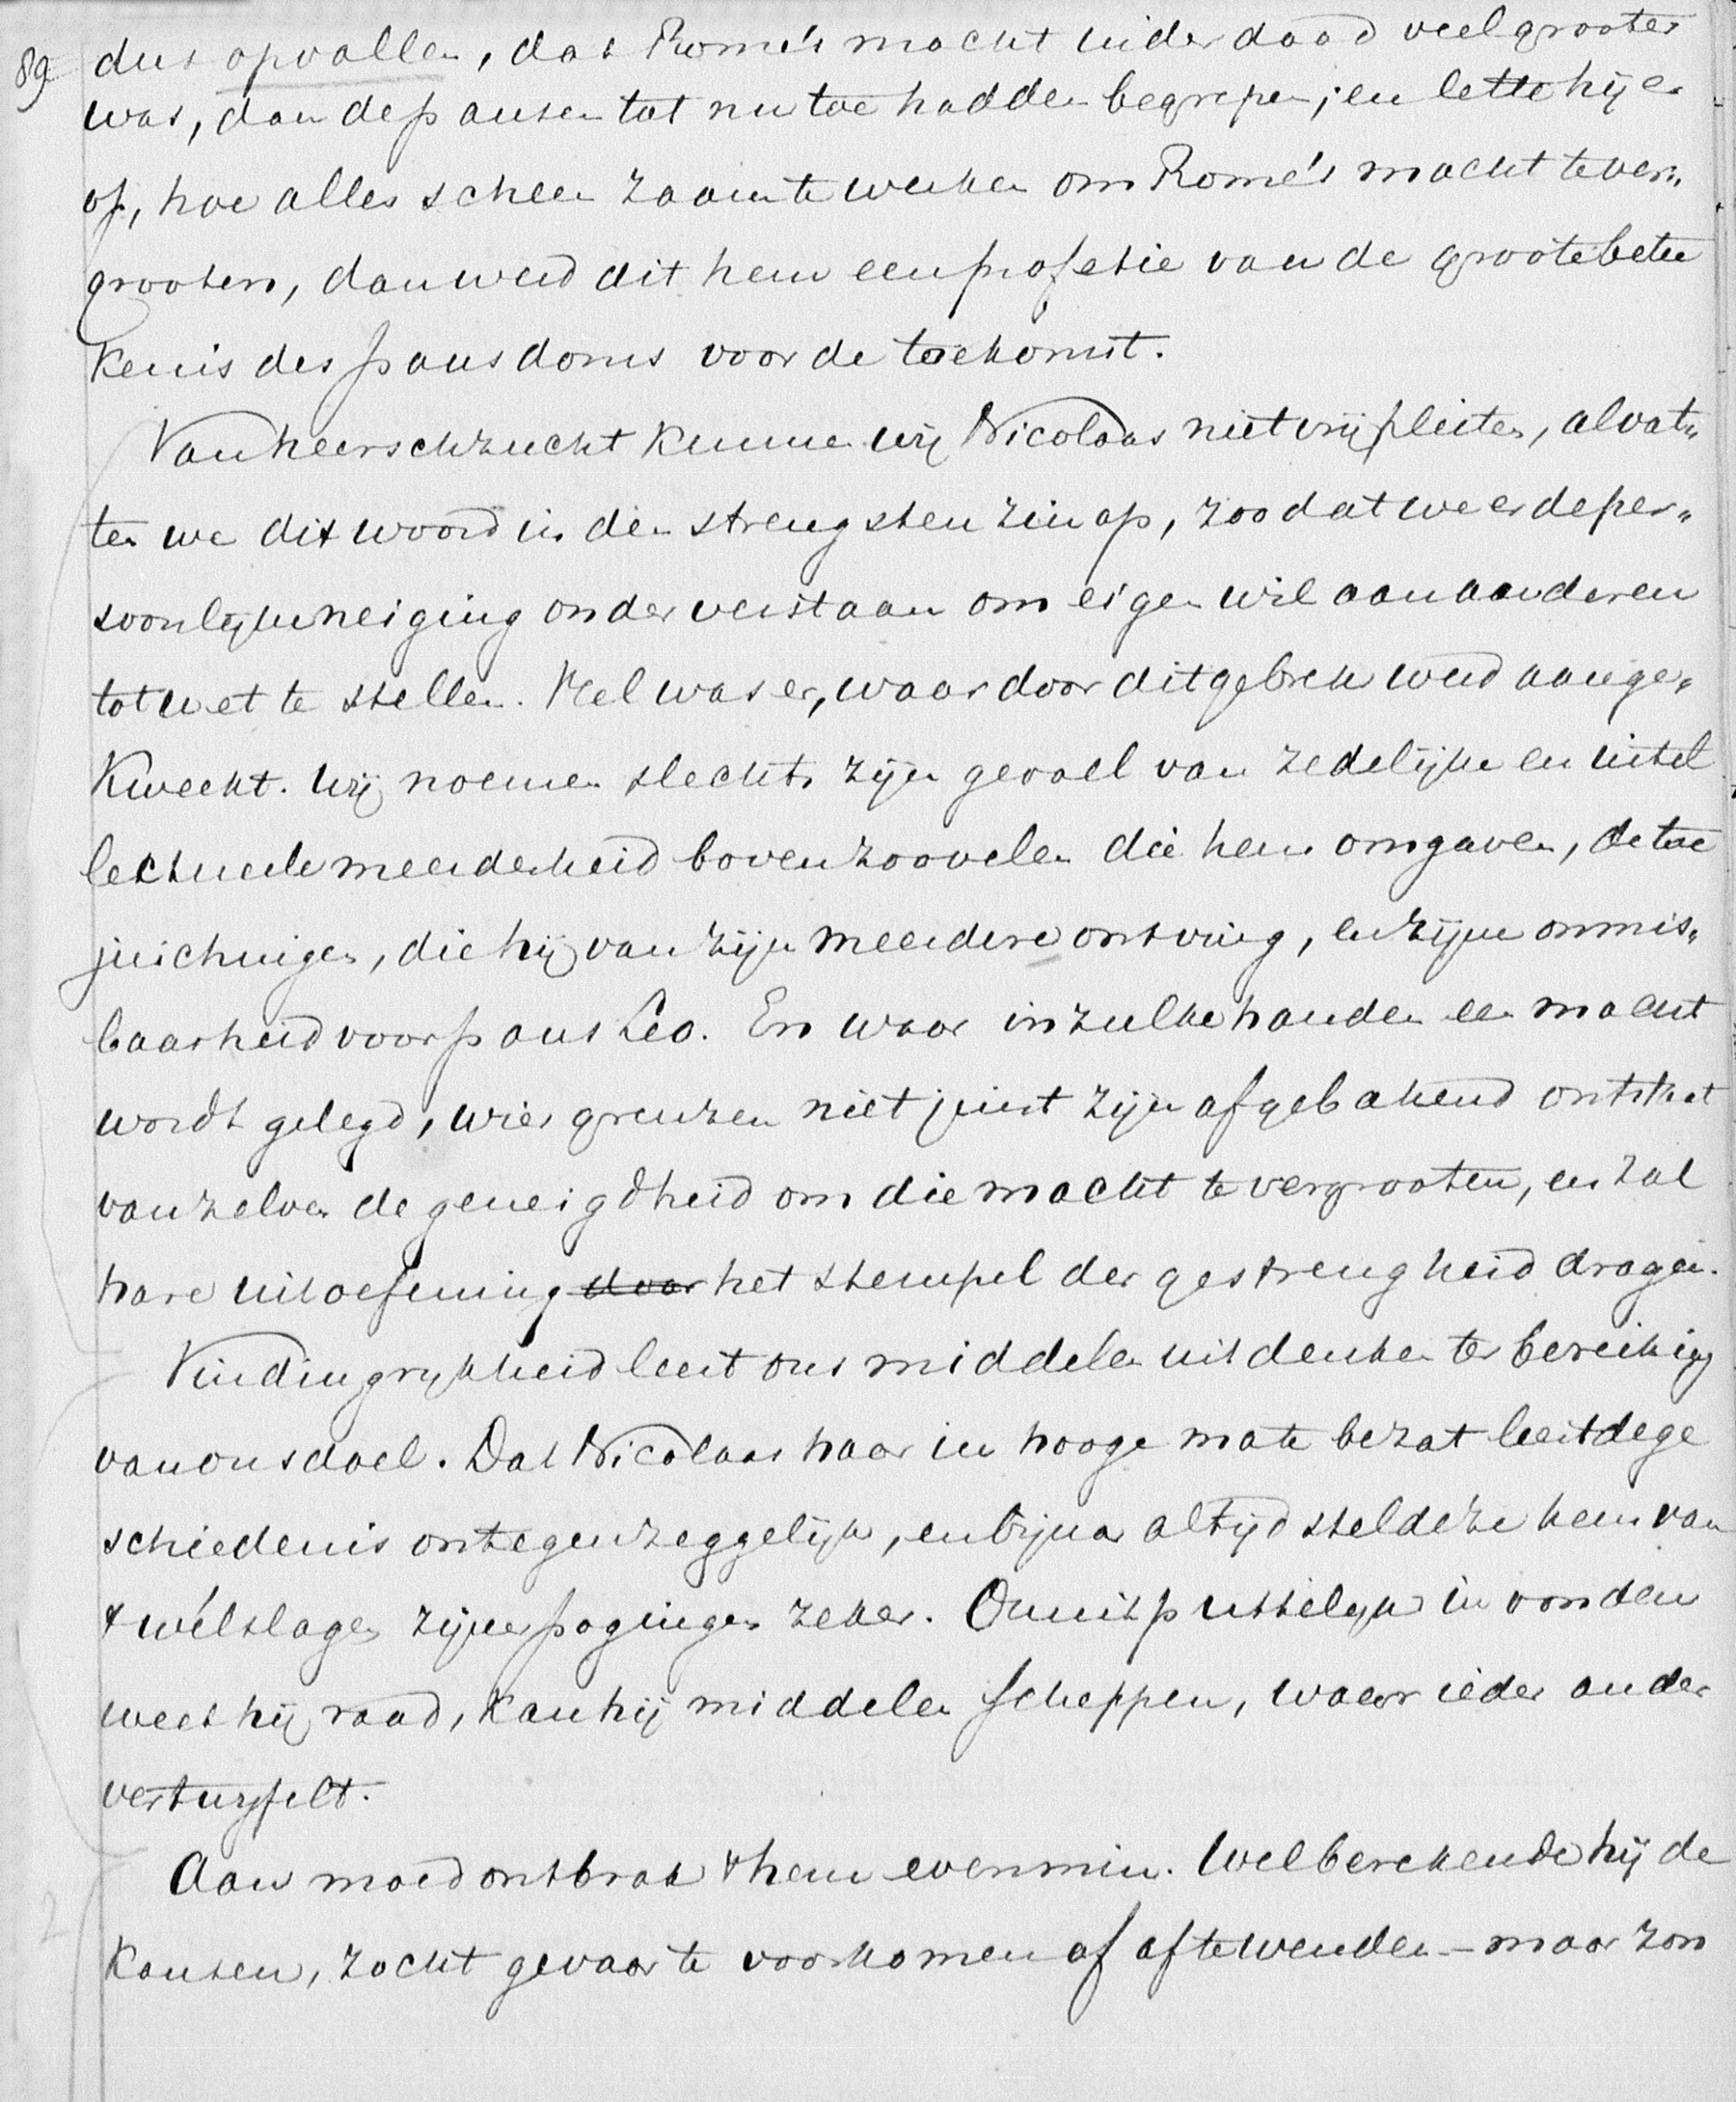 89 dus opvallen, dat Rome's macht inderdaad veel grooter
was, dan de pausen tot nu toe hadden begrepen; en lette hij er
op, hoe alles scheen zaam te werken om Rome's macht te ver„
grooten, dan werd dit hem een profetie van de groote betee
kenis des pausdoms voor de toekomst.
Van heerschzucht kunnen wij Nicolaas niet vrijpleiten, al vat„
ten we dit woord in den strengsten zin op, zoodat we er de per„
soonlijke neiging onder verstaan om eigen wil aan anderen
tot wet te stellen. Veel was er, waardoor dit gebrek werd aange„
kweekt. Wij noemen slechts zijn gevoel van zedelijke en intel
lectueele meerderheid boven zoovelen die hem omgaven, de toe
juichingen, die hij van zijn meerdere ontving, en zijne onmis„
baarheid voor paus Leo. En waar in zulke handen een macht
wordt gelegd, wier grenzen niet juist zijn afgebakend ontstaat
van zelven de geneigdheid om die macht te vergrooten, en zal
hare uitoefening door het stempel der gestrengheid dragen.
Vindingrijkheid leert ons middelen uitdenken ter bereiking
van ons doel. Dat Nicolaas haar in hooge mate bezat leert de ge
schiedenis ontegenzeggelijk, en bijna altijd stelde ze hem van
't welslagen zijner pogingen zeker. Onuitputtelijk in vonden
weet hij raad, kan hij middelen scheppen, waar ieder ander
vertwijfelt.
Aan moed ontbrak 't hem evenmin. Wel berekende hij de
kansen, zocht gevaar te voorkomen of af te wenden – maar zon